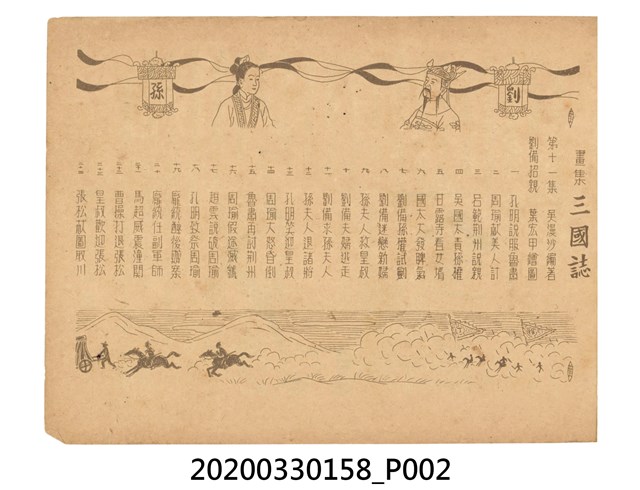 劉
孫
畫集 三國誌
第十一集 吳漫沙編著
劉備招親 葉宏甲繪圖
一 孔明說服魯肅
二 周瑜獻美人計
三 呂範荊州說親
四 吳國太責孫權
五 甘露寺看女婿
六 國太大發脾氣
七 劉備孫權試劍
八 劉備建戀新婦
九 孫夫人救皇叔
十 劉備夫婦逃走
十一 劉備求孫夫人
十二 孫夫人退諸將
十三 孔明坐迎皇叔
十四 周瑜大怒昏倒
十五 魯肅再討荊州
十六 周瑜假途滅虢
十七 趙雲說破周瑜
十八 孔明致祭周瑜
十九 龐統醉後辦案
二十 龐統任副軍師
二一 馬超威震潼關
二二 曹操打退張松
二三 皇叔歡迎張松
二四 張松獻圖取川
20200330158_P002